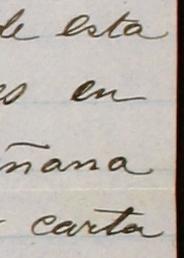 de esta
es en
ñana
carta